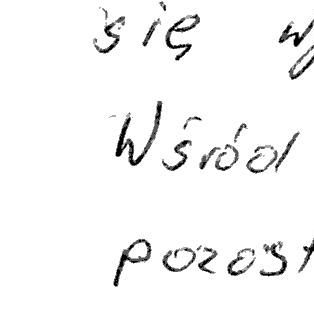 się
Wśród
pozost